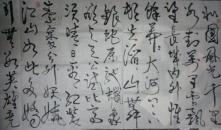 北国风光千
里冰封万里雪飘
望长城内外惟
余莽莽大河上下
顿失滔滔山舞
银蛇原驰蜡象
欲与天公试比高
须晴日看红装
素裹分外妖娆
江山如此多娇
引无数英雄竞